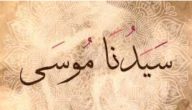 سَيِّدُنَا مُوسَى